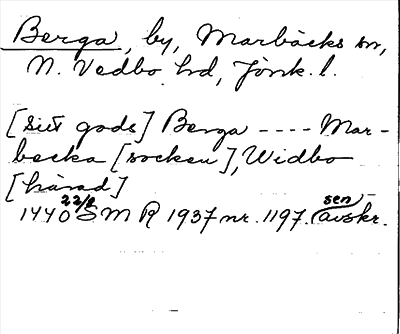 Berga, by, Marbäcks sn,
N. Vedbo hd, Jönk. l.
[sitt gods] Berga ---- Mar-
becka [socken], Widbo
[härad]
1440 22/2 SMR 1937 nr. 1197. (sen avskr.